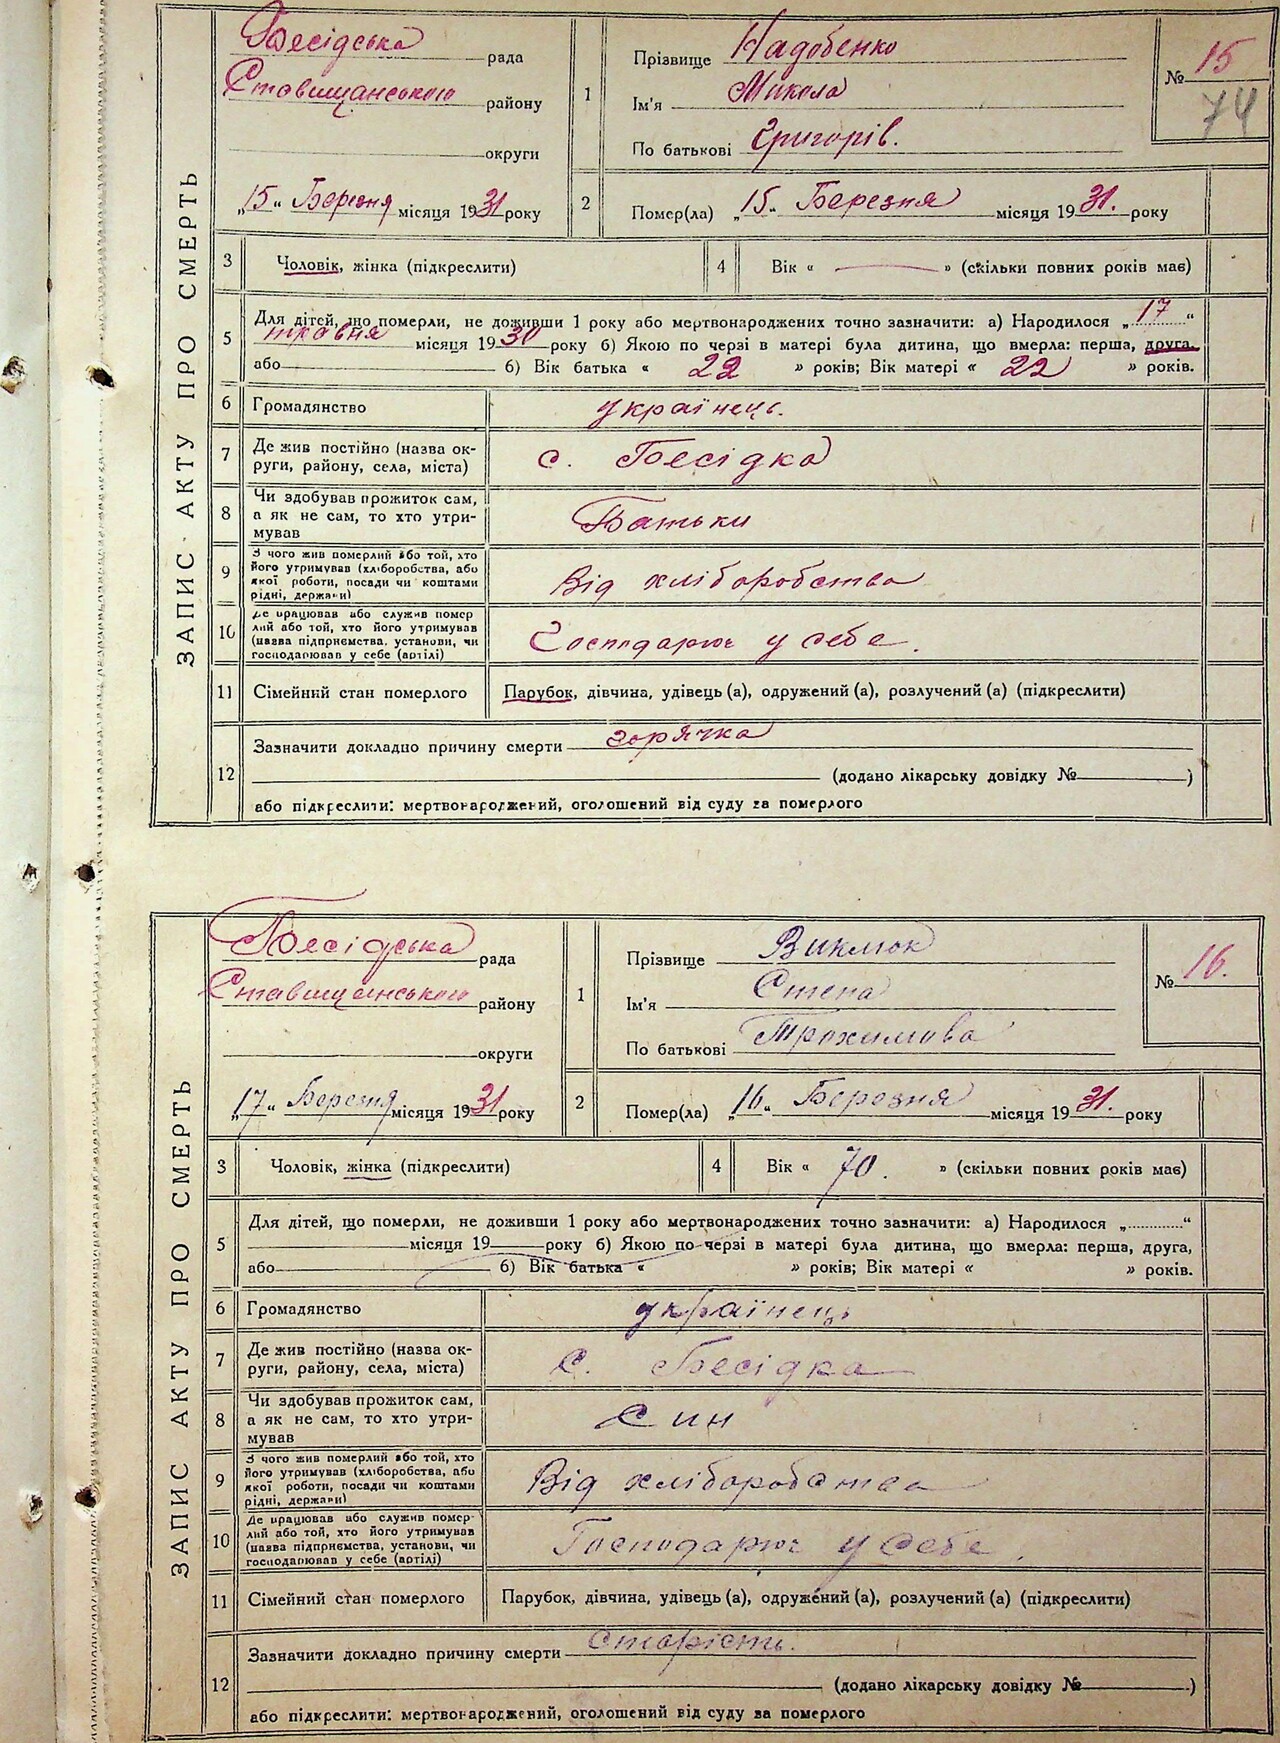 ЗАПИС АКТУ ПРО СМЕРТЬ
Бесідська рада
Ставищанського району
округи
„15“ Березня місяця 1931 року
1
Прізвище Надобенко
Ім'я Микола
По батькові Григорів.
№ 15
74
2
Помер(ла) „15“ Березня місяця 1931. року
3
Чоловік, жінка (підкреслити)
4
Вік « — » (скільки повних років має)
5
Для дітей, що померли, не доживши 1 року або мертвонароджених точно зазначити: а) Народилося „17“
травня місяця 1930 року б) Якою по черзі в матері була дитина, що вмерла: перша, друга,
або б) Вік батька « 22 » років; Вік матері « 22 » років.
6
Громадянство українець.
7
Де жив постійно (назва ок-
руги, району, села, міста)
с. Бесідка
8
Чи здобував прожиток сам,
а як не сам, то хто утри-
мував
Батьки
9
З чого жив померлий або той, хто
його утримував (хліборобства, або
якої роботи, посади чи коштами
рідні, держави)
Від хліборобства
10
Де працював або служив помер
лий або той, хто його утримував
(назва підприємства, установи, чи
господарював у себе (артілі)
Господарюч у себе.
11
Сімейний стан померлого
Парубок, дівчина, удівець (а), одружений (а), розлучений (а) (підкреслити)
12
Зазначити докладно причину смерти горячка
(додано лікарську довідку № )
або підкреслити: мертвонароджений, оголошений від суду за померлого
ЗАПИС АКТУ ПРО СМЕРТЬ
Бесідська рада
Ставищанського району
округи
„17“ Березня місяця 1931 року
1
Прізвище Викмюк
Ім'я Степа
По батькові Трохимова
№ 16.
2
Помер(ла) „16“ Березня місяця 1931. року
3
Чоловік, жінка (підкреслити)
4
Вік « 70. » (скільки повних років має)
5
Для дітей, що померли, не доживши 1 року або мертвонароджених точно зазначити: а) Народилося „ “
місяця 19 року б) Якою по черзі в матері була дитина, що вмерла: перша, друга,
або б) Вік батька « » років; Вік матері « » років.
6
Громадянство українець
7
Де жив постійно (назва ок-
руги, району, села, міста)
с. Бесідка
8
Чи здобував прожиток сам,
а як не сам, то хто утри-
мував
Син
9
З чого жив померлий або той, хто
його утримував (хліборобства, або
якої роботи, посади чи коштами
рідні, держави)
Від хліборобства
10
Де працював або служив помер-
лий або той, хто його утримував
(назва підприємства, установи, чи
господарював у себе (артілі)
Господарюч у себе.
11
Сімейний стан померлого
Парубок, дівчина, удівець (а), одружений (а), розлучений (а) (підкреслити)
12
Зазначити докладно причину смерти старість.
(додано лікарську довідку № )
або підкреслити: мертвонароджений, оголошений від суду за померлого